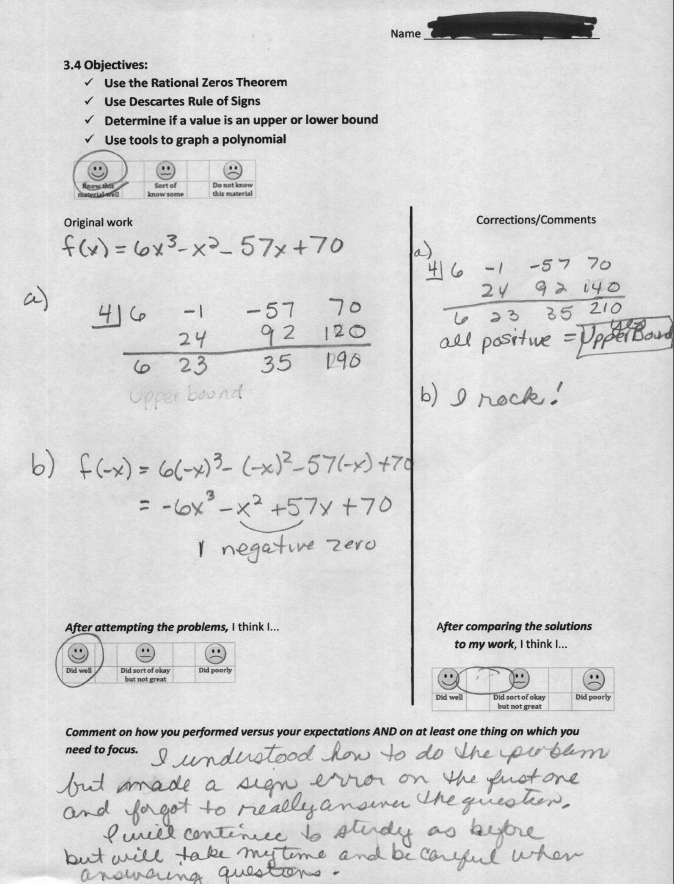 Name
3.4 Objectives:
✓ Use the Rational Zeros Theorem
✓ Use Descartes Rule of Signs
✓ Determine if a value is an upper or lower bound
✓ Use tools to graph a polynomial
Know this material well
Sort of know some
Do not know this material
Original work
f(x) = 6x³-x²-57x+70
a)
4| 6 -1 -57 70
24 92 120
6 23 35 190
Upper bound
b) f(-x) = 6(-x)³-(-x)²-57(-x)+70
= -6x³-x²+57x+70
1 negative zero
Corrections/Comments
a)
4| 6 -1 -57 70
24 92 140
6 23 35 210
all positive = Upper Bound
yes
b) I rock!
After attempting the problems, I think I...
Did well
Did sort of okay but not great
Did poorly
After comparing the solutions
to my work, I think I...
Did well
Did sort of okay but not great
Did poorly
Comment on how you performed versus your expectations AND on at least one thing on which you
need to focus. I understood how to do the problem
but made a sign error on the first one
and forgot to really answer the question.
I will continue to study as before
but will take my time and be careful when
answering questions.